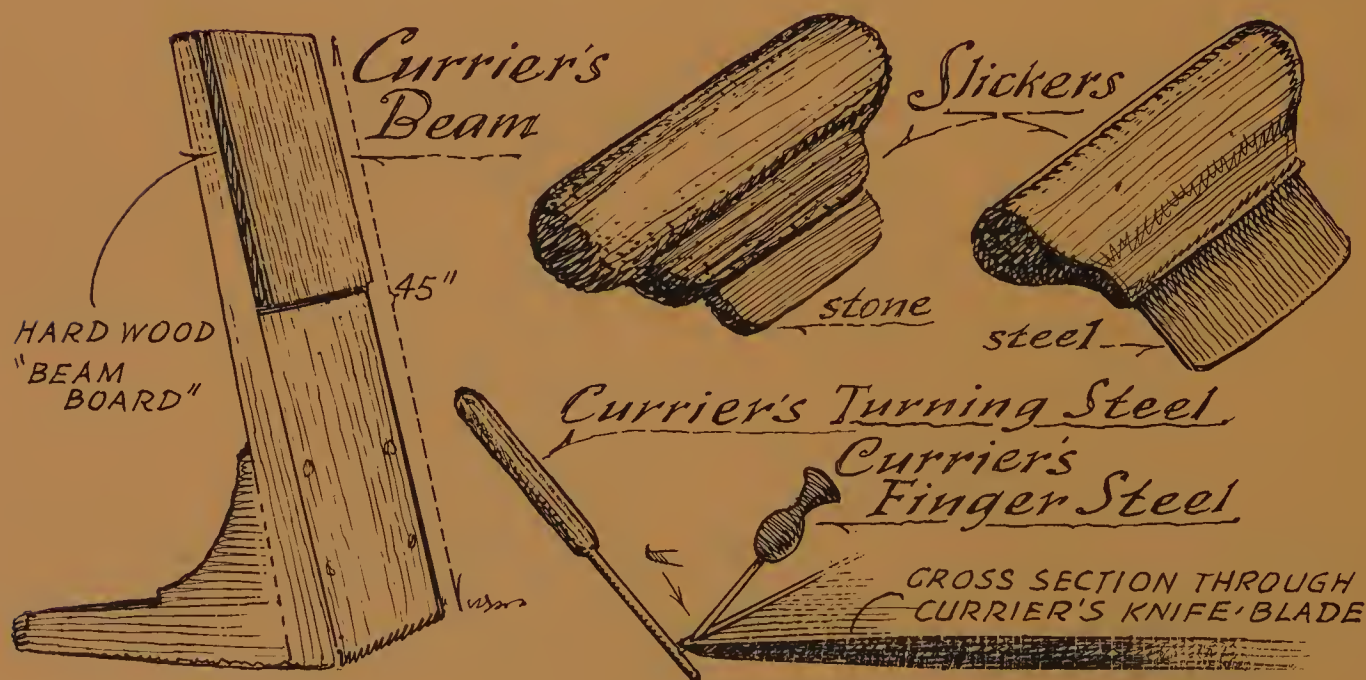 Currier's
Beam
Slickers
45"
HARD WOOD
"BEAM
BOARD"
stone
steel
Currier's Turning Steel
Currier's
Finger Steel
CROSS SECTION THROUGH
CURRIER'S KNIFE-BLADE